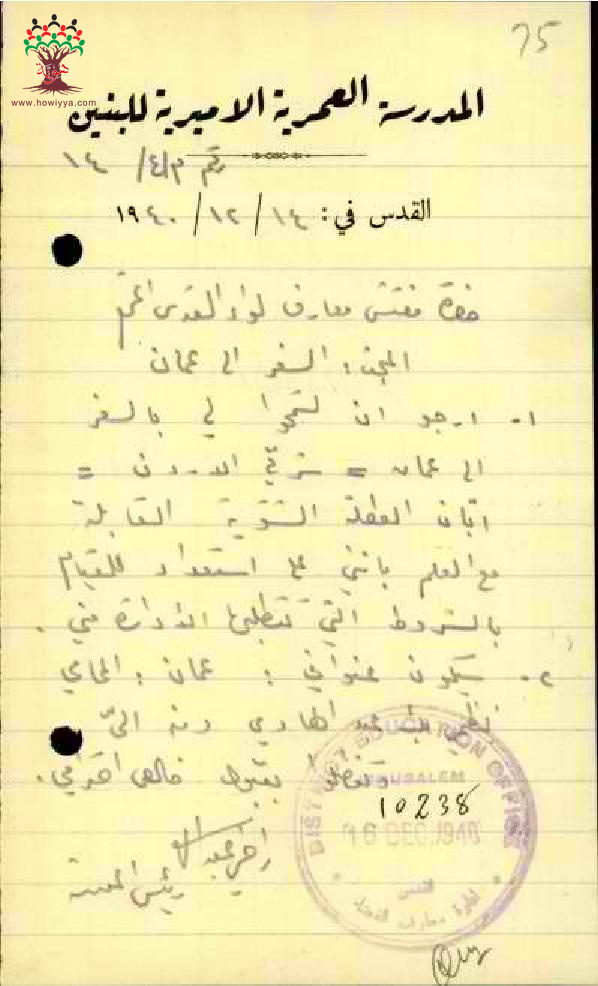 75
www.howiyya.com
المدرسة العمرية الاميرية للبنين
رقم م/٤/ ١٤
القدس في: ١٤ / ١٢ / ١٩٤٠
حضرة مفتش معارف لواء القدس المحترم
السفر الى عمان
١- ارجو ان تسمحوا لي بالسفر
الى عمان = شرقي الاردن =
ابّان العطلة الشتوية القابلة
مع العلم بانني على استعداد للقيام
بالشروط التي تتطلبها الادارة مني .
٢- سيكون عنواني : عمان : المحامي
نظمي عبد الهادي ومنه اليّ
وتفضلوا بقبول خالص احترامي .
DISTRICT EDUCATION OFFICE
JERUSALEM
10238
16 DEC 1940
القدس
ادارة معارف
رئيس المدرسة